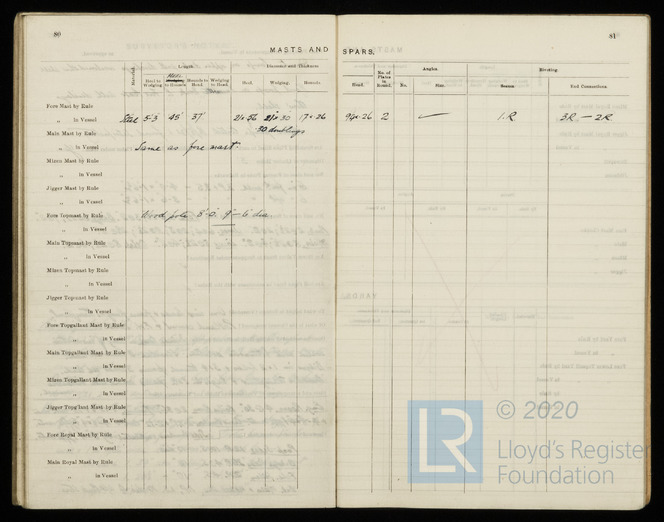 80
81
MASTS AND SPARS.
Material.
Length.
Diameter and Thickness
Heel to Wedging
to Rounds
Hounds to Head
Wedging to Head.
Heel.
Wedging.
Hounds.
Head.
No. of Plates in Round.
Angles.
No.
Size.
Riveting.
Seams.
End Connections.
Fore Mast by Rule
„ in Vessel Steel 37' 21 x 36 17 x 26 2 — 1.R 3R — 2R
30 doublings
Main Mast by Rule
„ in Vessel Same as fore mast.
Mizen Mast by Rule
„ in Vessel
Jigger Mast by Rule
„ in Vessel
Fore Topmast by Rule Wood pole
„ in Vessel
Main Topmast by Rule
„ in Vessel
Mizen Topmast by Rule
„ in Vessel
Jigger Topmast by Rule
„ in Vessel
Fore Topgallant Mast by Rule
„ in Vessel
Main Topgallant Mast by Rule
„ in Vessel
Mizen Topgallant Mast by Rule
„ in Vessel
Jigger Topg'lant Mast by Rule
„ in Vessel
Fore Royal Mast by Rule
„ in Vessel
Main Royal Mast by Rule
„ in Vessel
LR
© 2020
Lloyd's Register
Foundation